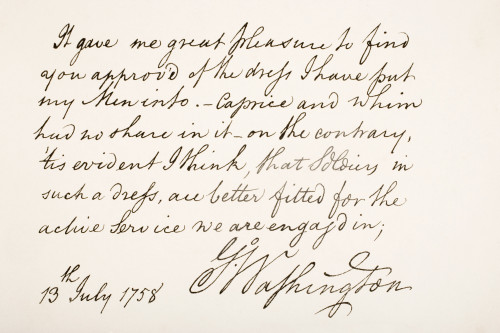 It gave me great pleasure to find
you approv'd of the dress I have put
my Men into. – Caprice and whim
had no share in it – on the contrary,
'tis evident I think, that Soldiers in
such a dress, are better fitted for the
active Service we are engag'd in;
G:Washington
13th July 1758